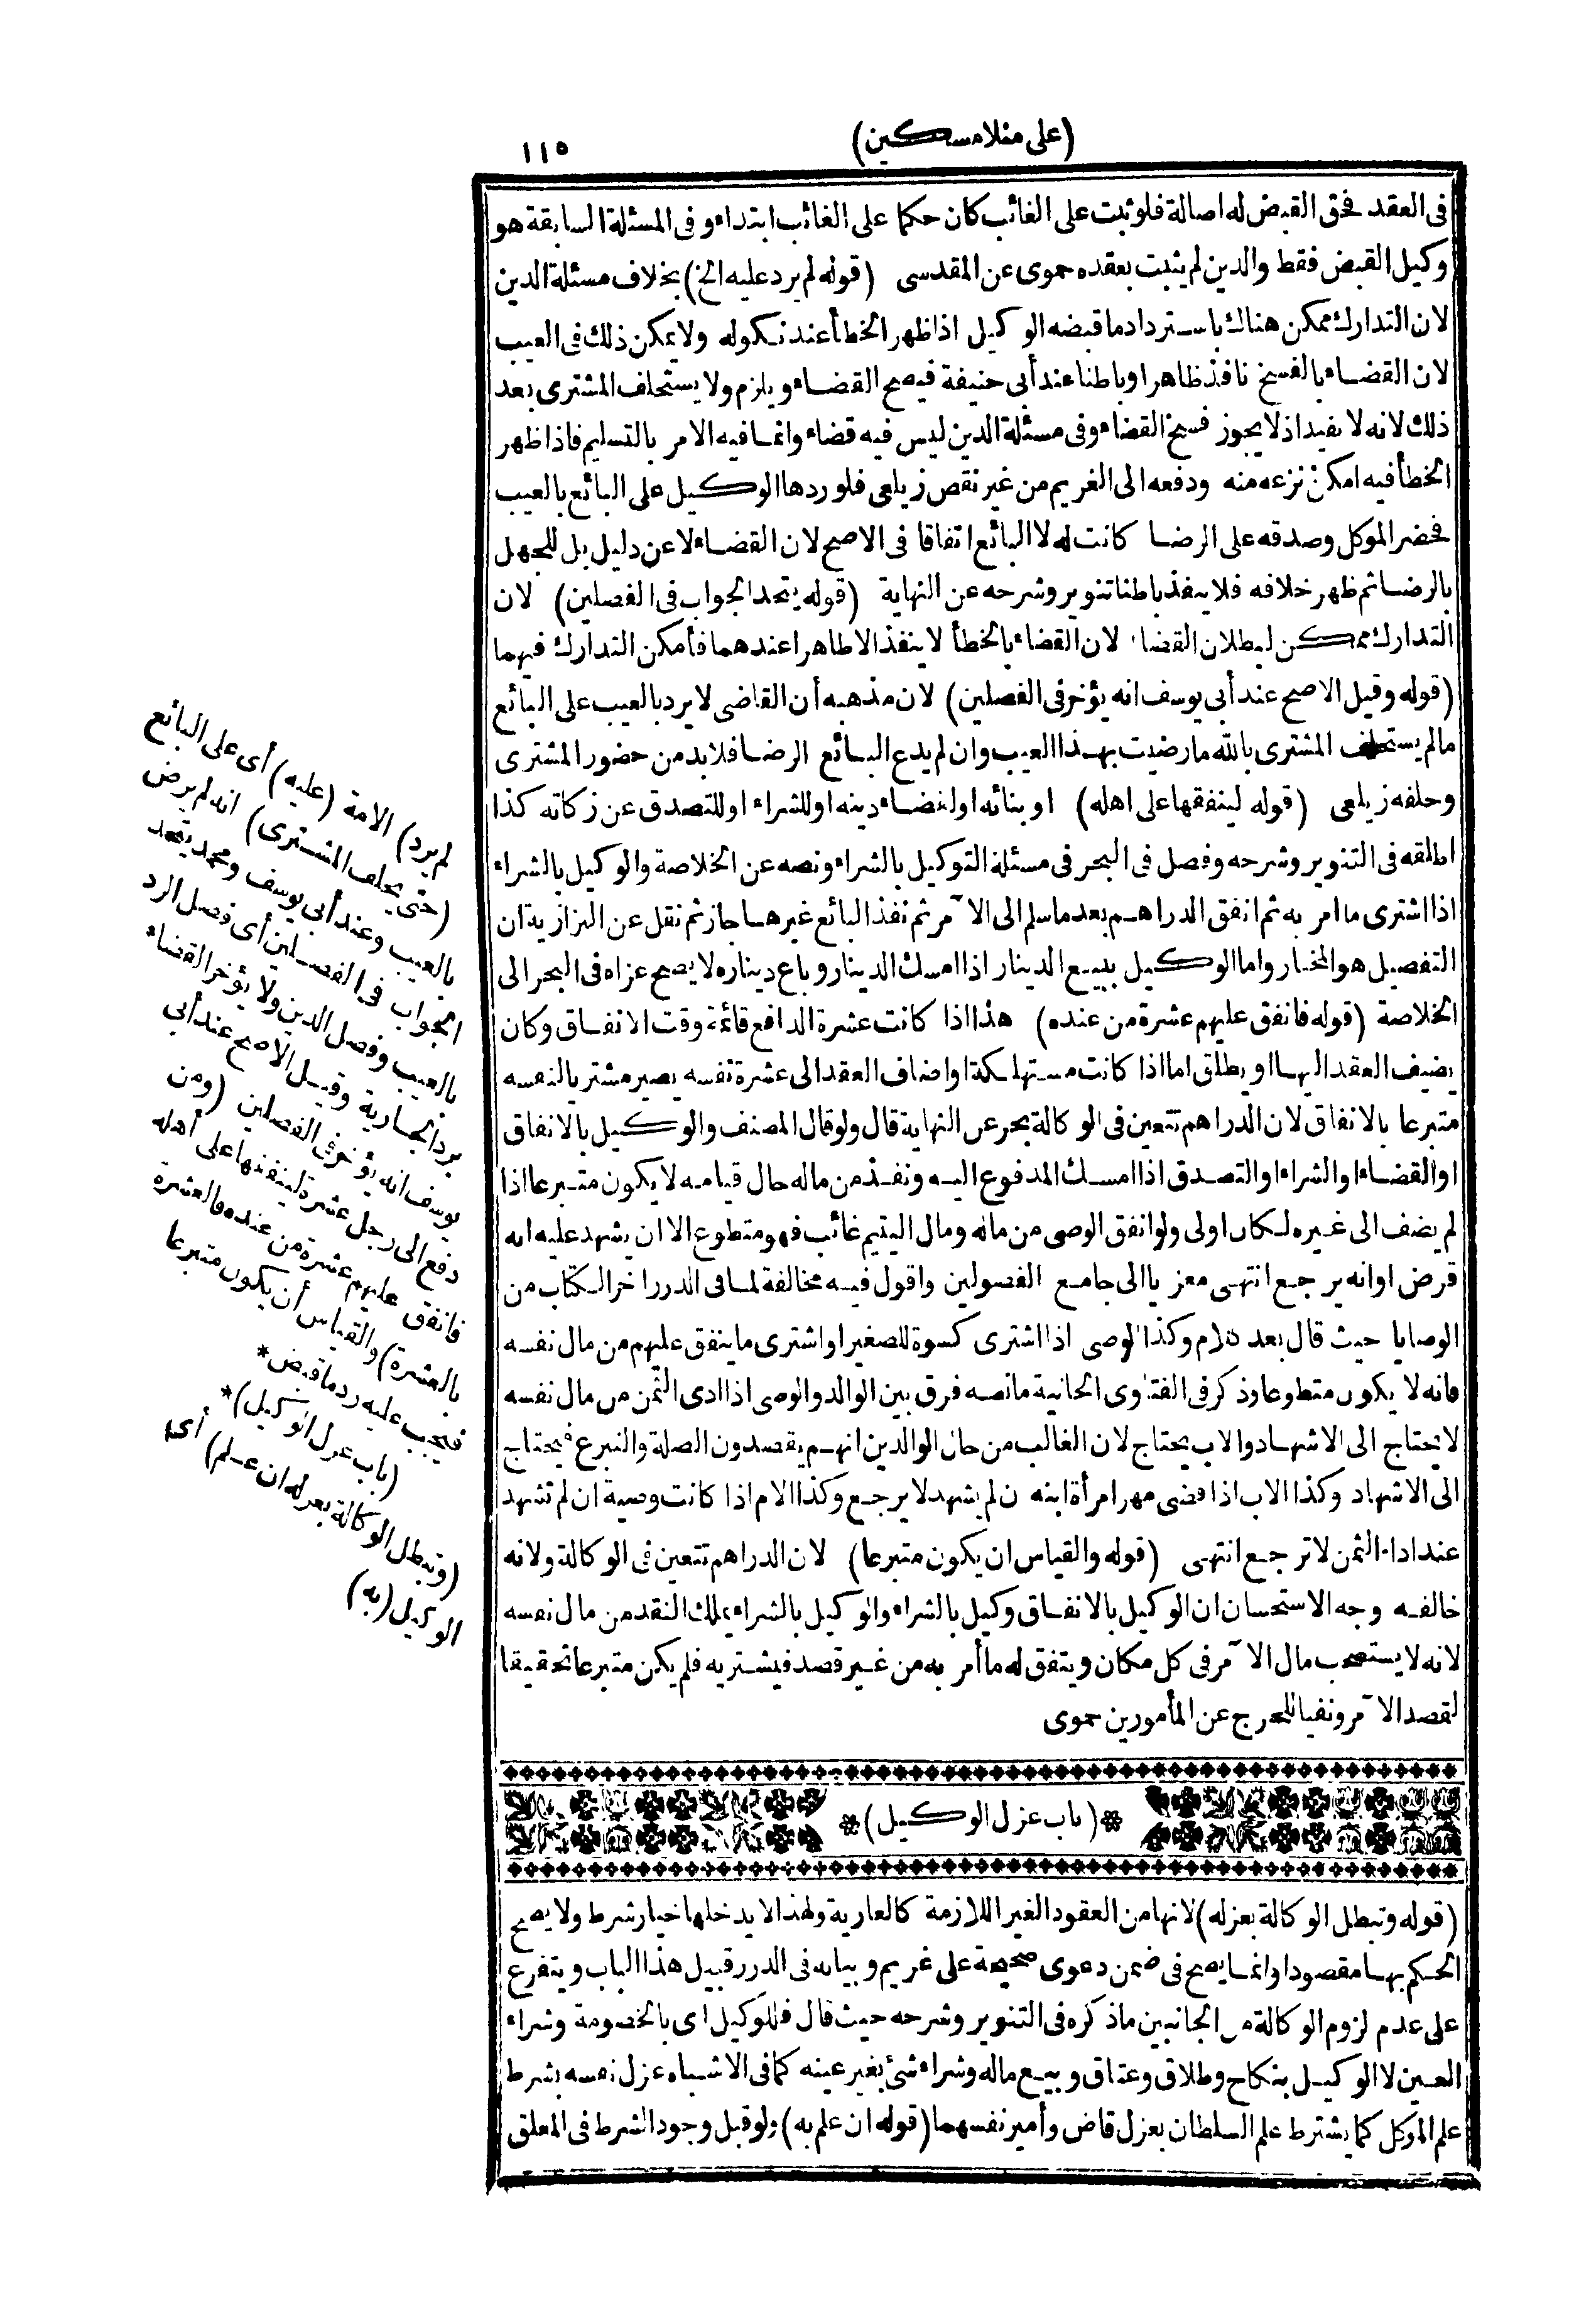 (على منلا مسكين)
١١٥
فى العقد فحق القبض له اصالة فلو ثبت على الغائب كان حكما على الغائب ابتداء وفى المسئلة السابقة هو
وكيل القبض فقط والدين لم يثبت بعقده حموى عن المقدسى (قوله لم يرد عليه الخ) بخلاف مسئلة الدين
لان التدارك ممكن هناك باسترداد ما قبضه الوكيل اذا ظهر الخطأ عند نكوله ولا يمكن ذلك فى العيب
لان القضاء بالفسخ نافذ ظاهرا وباطنا عند أبى حنيفة فيصح القضاء ويلزم ولا يستحلف المشترى بعد
ذلك لانه لا يفيد اذ لا يجوز فسخ القضاء وفى مسئلة الدين ليس فيه قضاء وانما فيه الامر بالتسليم فاذا ظهر
الخطأ فيه امكن نزعه منه ودفعه الى الغريم من غير نقص زيلعى فلو ردها الوكيل على البائع بالعيب
فحضر الموكل وصدقه على الرضا كانت له لا البائع اتفاقا فى الاصح لان القضاء لا عن دليل بل للجهل
بالرضا ثم ظهر خلافه فلا ينفذ باطنا تنوير وشرحه عن النهاية (قوله يتحد الجواب فى الفصلين) لان
التدارك ممكن لبطلان القضاء لان القضاء بالخطأ لا ينفذ الا ظاهرا عندهما فأمكن التدارك فيهما
(قوله وقيل الاصح عند أبى يوسف انه يؤخر فى الفصلين) لان مذهبه أن القاضى لا يرد بالعيب على البائع
ما لم يستحلف المشترى بالله ما رضيت بهذا العيب وان لم يدع البائع الرضا فلا بد من حضور المشترى
وحلفه زيلعى (قوله لينفقها على اهله) او بنائه او لقضاء دينه او للشراء او للتصدق عن زكاته كذا
اطلقه فى التنوير وشرحه وفصل فى البحر فى مسئلة التوكيل بالشراء ونصه عن الخلاصة والوكيل بالشراء
اذا اشترى ما امر به ثم انفق الدراهم بعد ما سلم الى الآمر ثم نفذ البائع غيرها جاز ثم نقل عن البزازية ان
التفصيل هو المختار واما الوكيل ببيع الدينار اذا امسك الدينار وباع ديناره لا يصح عزاه فى البحر الى
الخلاصة (قوله فانفق عليهم عشرة من عنده) هذا اذا كانت عشرة الدافع قائمة وقت الانفاق وكان
يضيف العقد اليها او يطلق اما اذا كانت مستهلكة او اضاف العقد الى عشرة نفسه يصير مشتريا لنفسه
متبرعا بالانفاق لان الدراهم تتعين فى الوكالة بحر عن النهاية قال ولو قال المصنف والوكيل بالانفاق
او القضاء او الشراء او التصدق اذا امسك المدفوع اليه ونفذ من ماله حال قيامه لا يكون متبرعا اذا
لم يضف الى غيره لكان اولى ولو انفق الوصى من ماله ومال اليتيم غائب فهو متطوع الا ان يشهد عليه انه
قرض او انه يرجع انتهى معزيا الى جامع الفصولين واقول فيه مخالفة لما فى الدرر اخر الكتاب من
الوصايا حيث قال بعد كلام وكذا الوصى اذا اشترى كسوة للصغير او اشترى ما ينفق عليهم من مال نفسه
فانه لا يكون متطوعا وذكر فى الفتاوى الخانية ما نصه فرق بين الوالد والوصى اذا ادى الثمن من مال نفسه
لا يحتاج الى الاشهاد والاب يحتاج لان الغالب من حال الوالدين انهم يقصدون الصلة والتبرع فيحتاج
الى الاشهاد وكذا الاب اذا قضى مهر امرأة ابنه ن لم يشهد لا يرجع وكذا الام اذا كانت وصية ان لم تشهد
عند اداء الثمن لا ترجع انتهى (قوله والقياس ان يكون متبرعا) لان الدراهم تتعين فى الوكالة ولانه
خالفه وجه الاستحسان ان الوكيل بالانفاق وكيل بالشراء والوكيل بالشراء يملك النقد من مال نفسه
لانه لا يستصحب مال الآمر فى كل مكان ويتفق له ما أمر به من غير قصد فيشتريه فلم يكن متبرعا تحقيقا
لقصد الآمر ونفيا للحرج عن المأمورين حموى
*(باب عزل الوكيل)*
(قوله وتبطل الوكالة بعزله) لانها من العقود الغير اللازمة كالعارية ولهذا لا يدخلها خيار شرط ولا يصح
الحكم بها مقصودا وانما يصح فى ضمن دعوى صحيحة على غريم وبيانه فى الدرر قبيل هذا الباب ويتفرع
على عدم لزوم الوكالة من الجانبين ما ذكره فى التنوير وشرحه حيث قال فللوكيل اى بالخصومة وشراء
العين لا الوكيل بنكاح وطلاق وعتاق وبيع ماله وشراء شئ بغير عينه كما فى الاشباه عزل نفسه بشرط
علم الموكل كما يشترط علم السلطان بعزل قاض وأمير نفسهما (قوله ان علم به) ولو قبل وجود الشرط فى المعلق
لم يرد) الامة (عليه) أى على البائع
(حتى يحلف المشترى) انه لم يرض
بالعيب وعند أبى يوسف ومحمد يتحد
الجواب فى الفصلين أى فصل الرد
بالعيب وفصل الدين ولا يؤخر القضاء
برد الجارية وقيل الاصح عند أبى
يوسف انه يؤخر فى الفصلين (ومن
دفع الى رجل عشرة لينفقها على أهله
فانفق عليهم عشرة من عنده فالعشرة
بالعشرة) والقياس أن يكون متبرعا
فيجب عليه رد ما قبض*
(باب عزل الوكيل)*
(وتبطل الوكالة بعزله ان علم) أى
الوكيل (به)